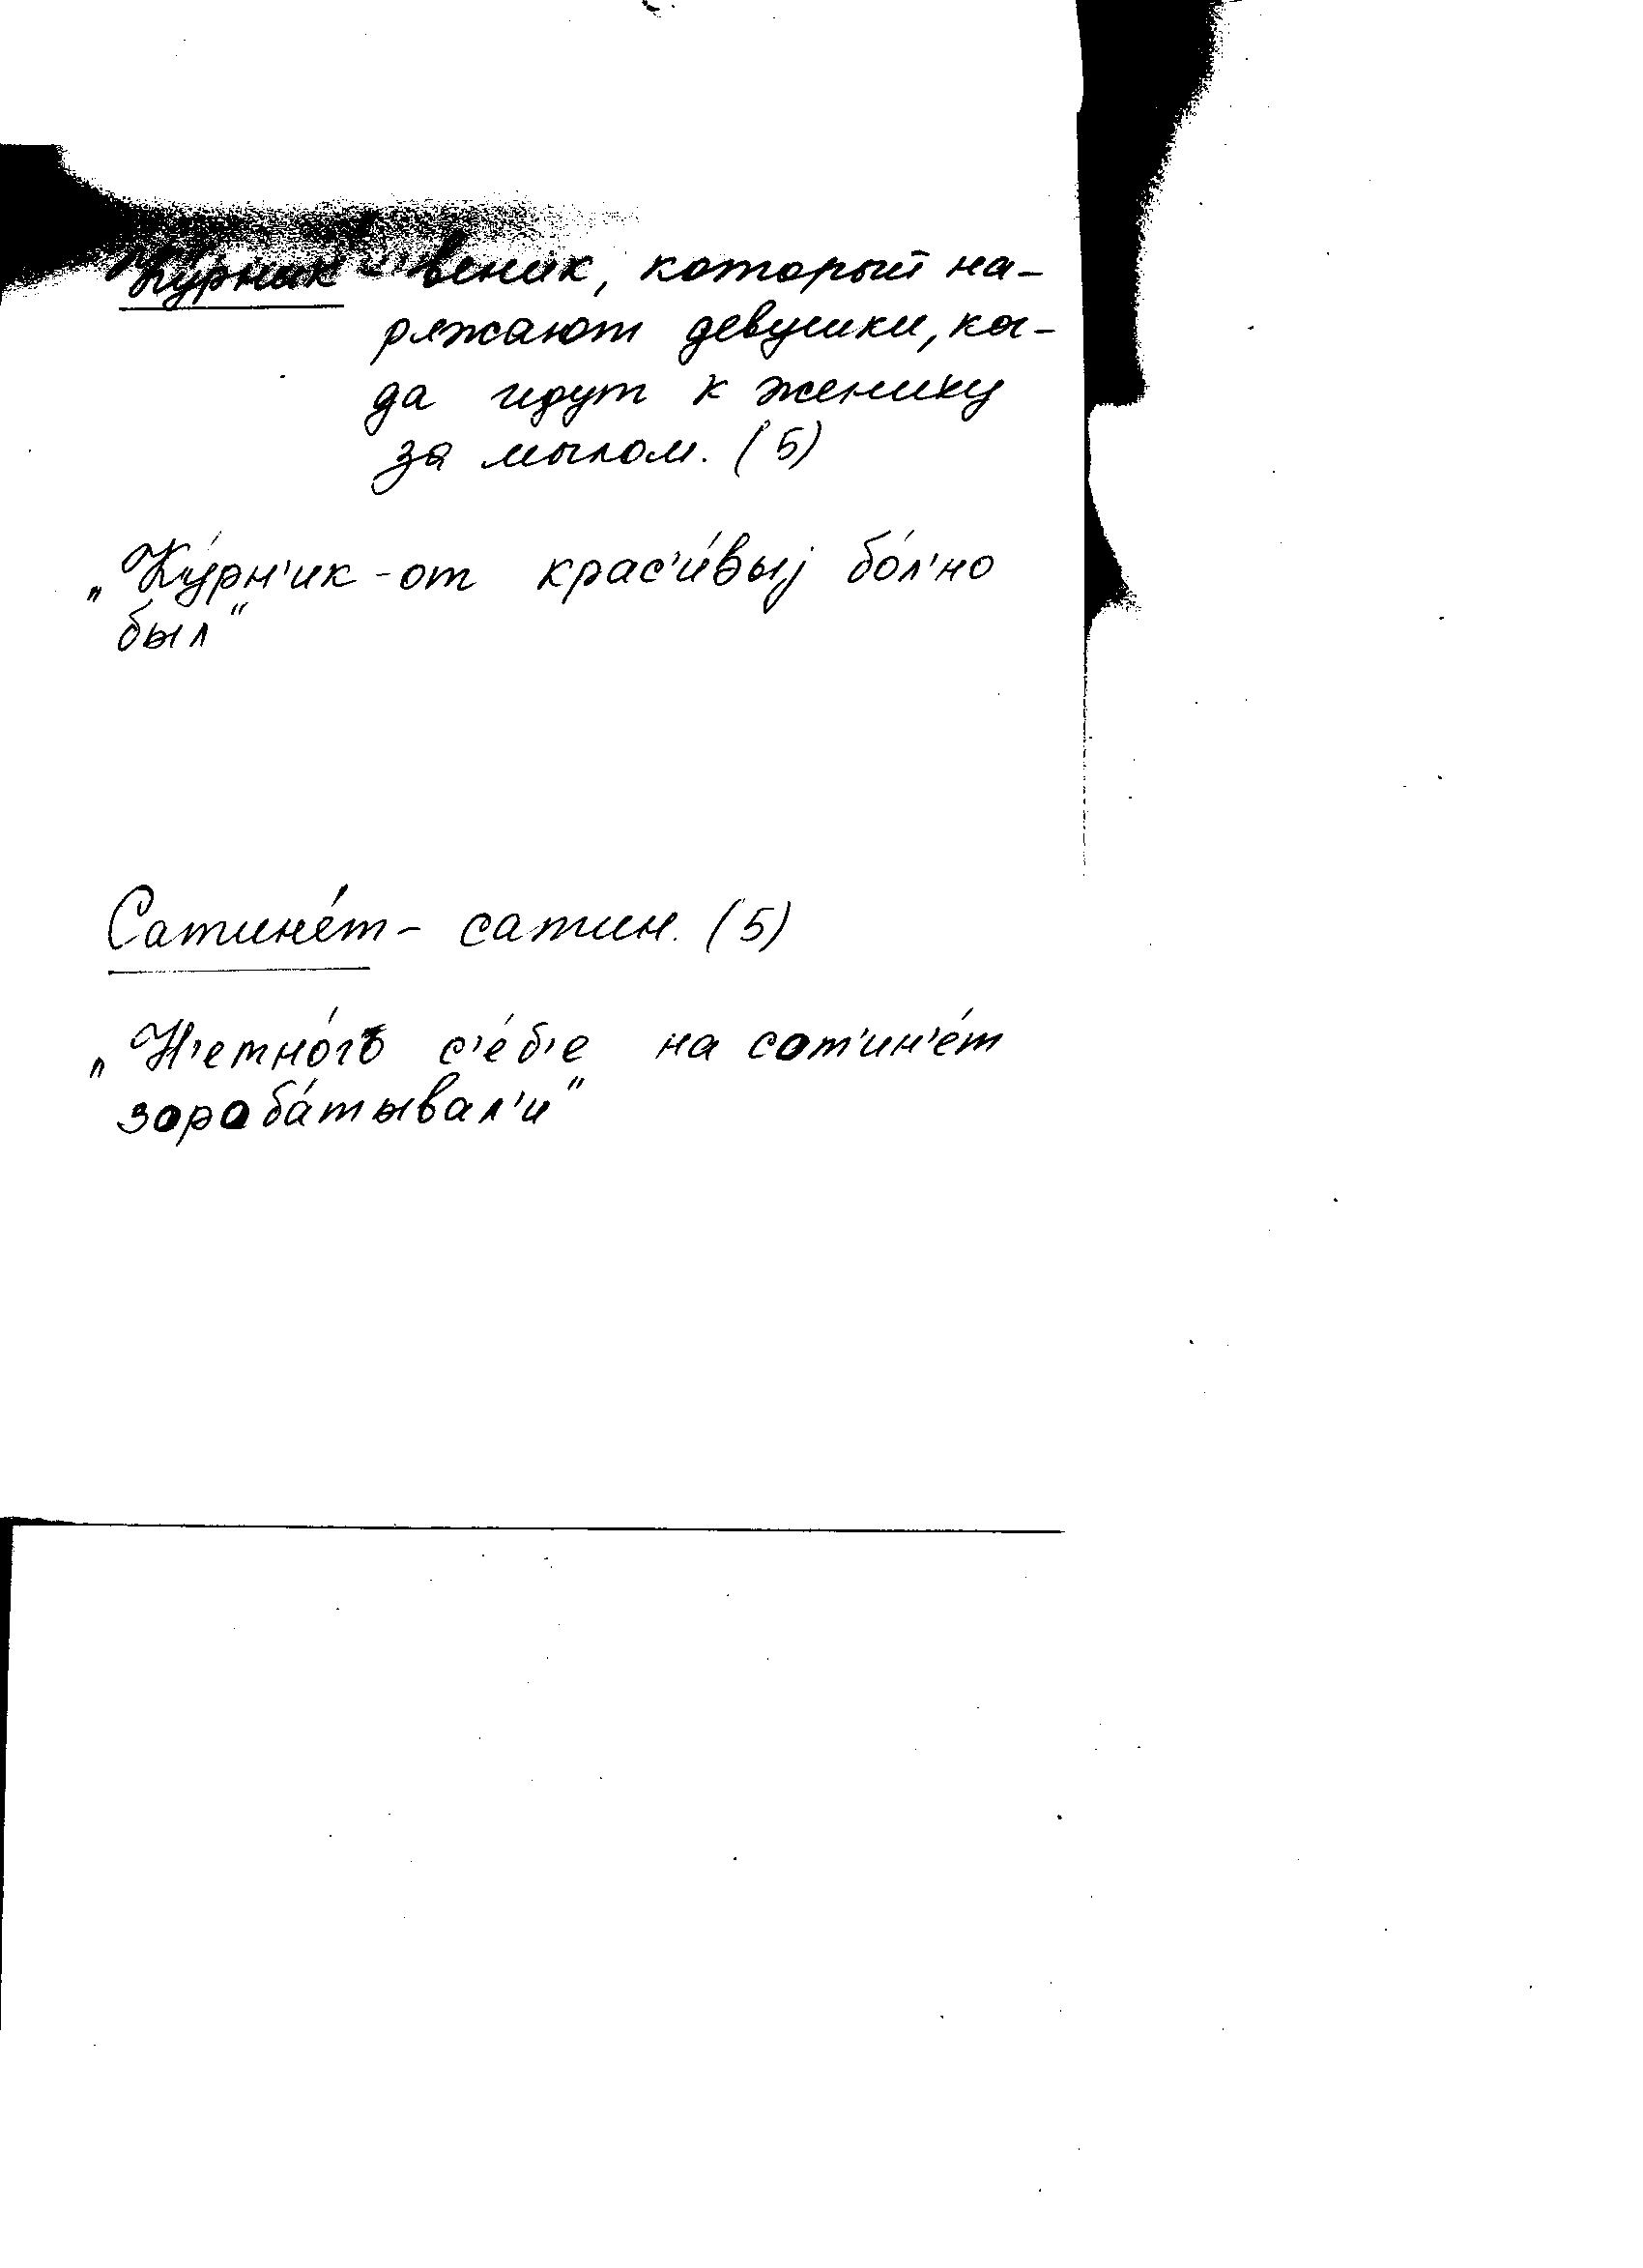 Ку́рник – веник, который на-
ряжают девушки, ко-
да идут к жениху
за мылом. (5)
„Ку́рн'ик-от крас'и́выj бо́л'но
был"
Сатине́т – сатин. (5)
„Н'етно́гъ с'е́б'е на сот'ин'е́т
зороба́тывал'и"